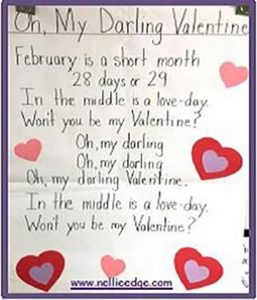 Oh, My Darling Valentine
February is a short month
28 days or 29
In the middle is a love-day.
Won't you be my Valentine?
Oh, my darling
Oh, my darling
Oh, my darling Valentine.
In the middle is a love-day.
Won't you be my Valentine?
www.nellieedge.com